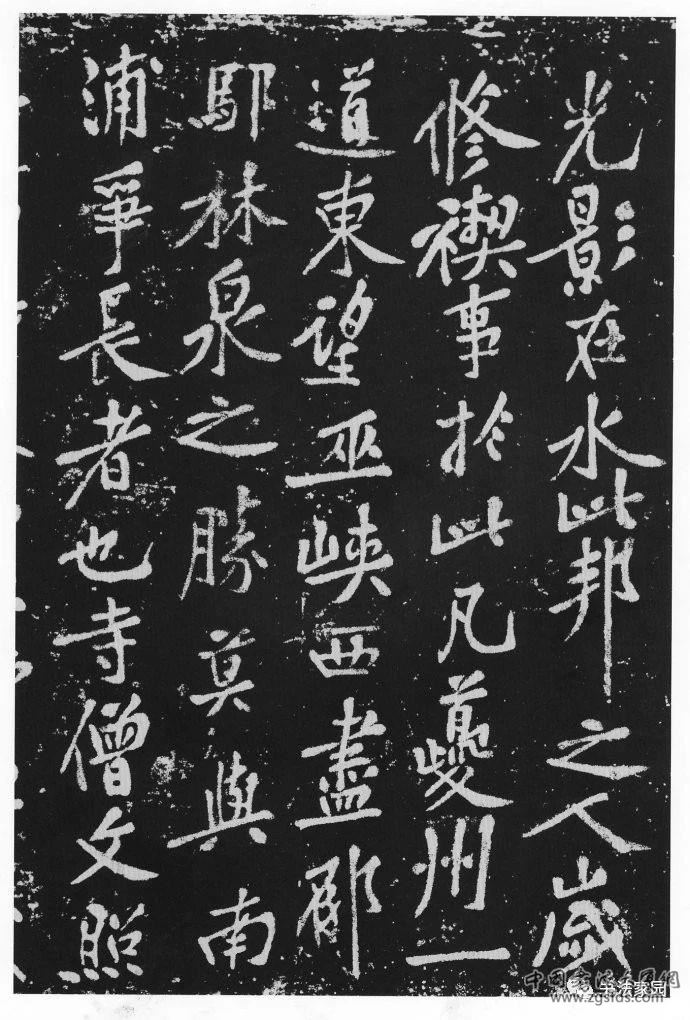 光影在水此邦之人歲
修禊事於此凡夔州一
道東望巫峽西盡郁
鄢林泉之勝莫與南
浦爭長者也寺僧文照
中国书法家园网
书法家园
www.zgsfds.com